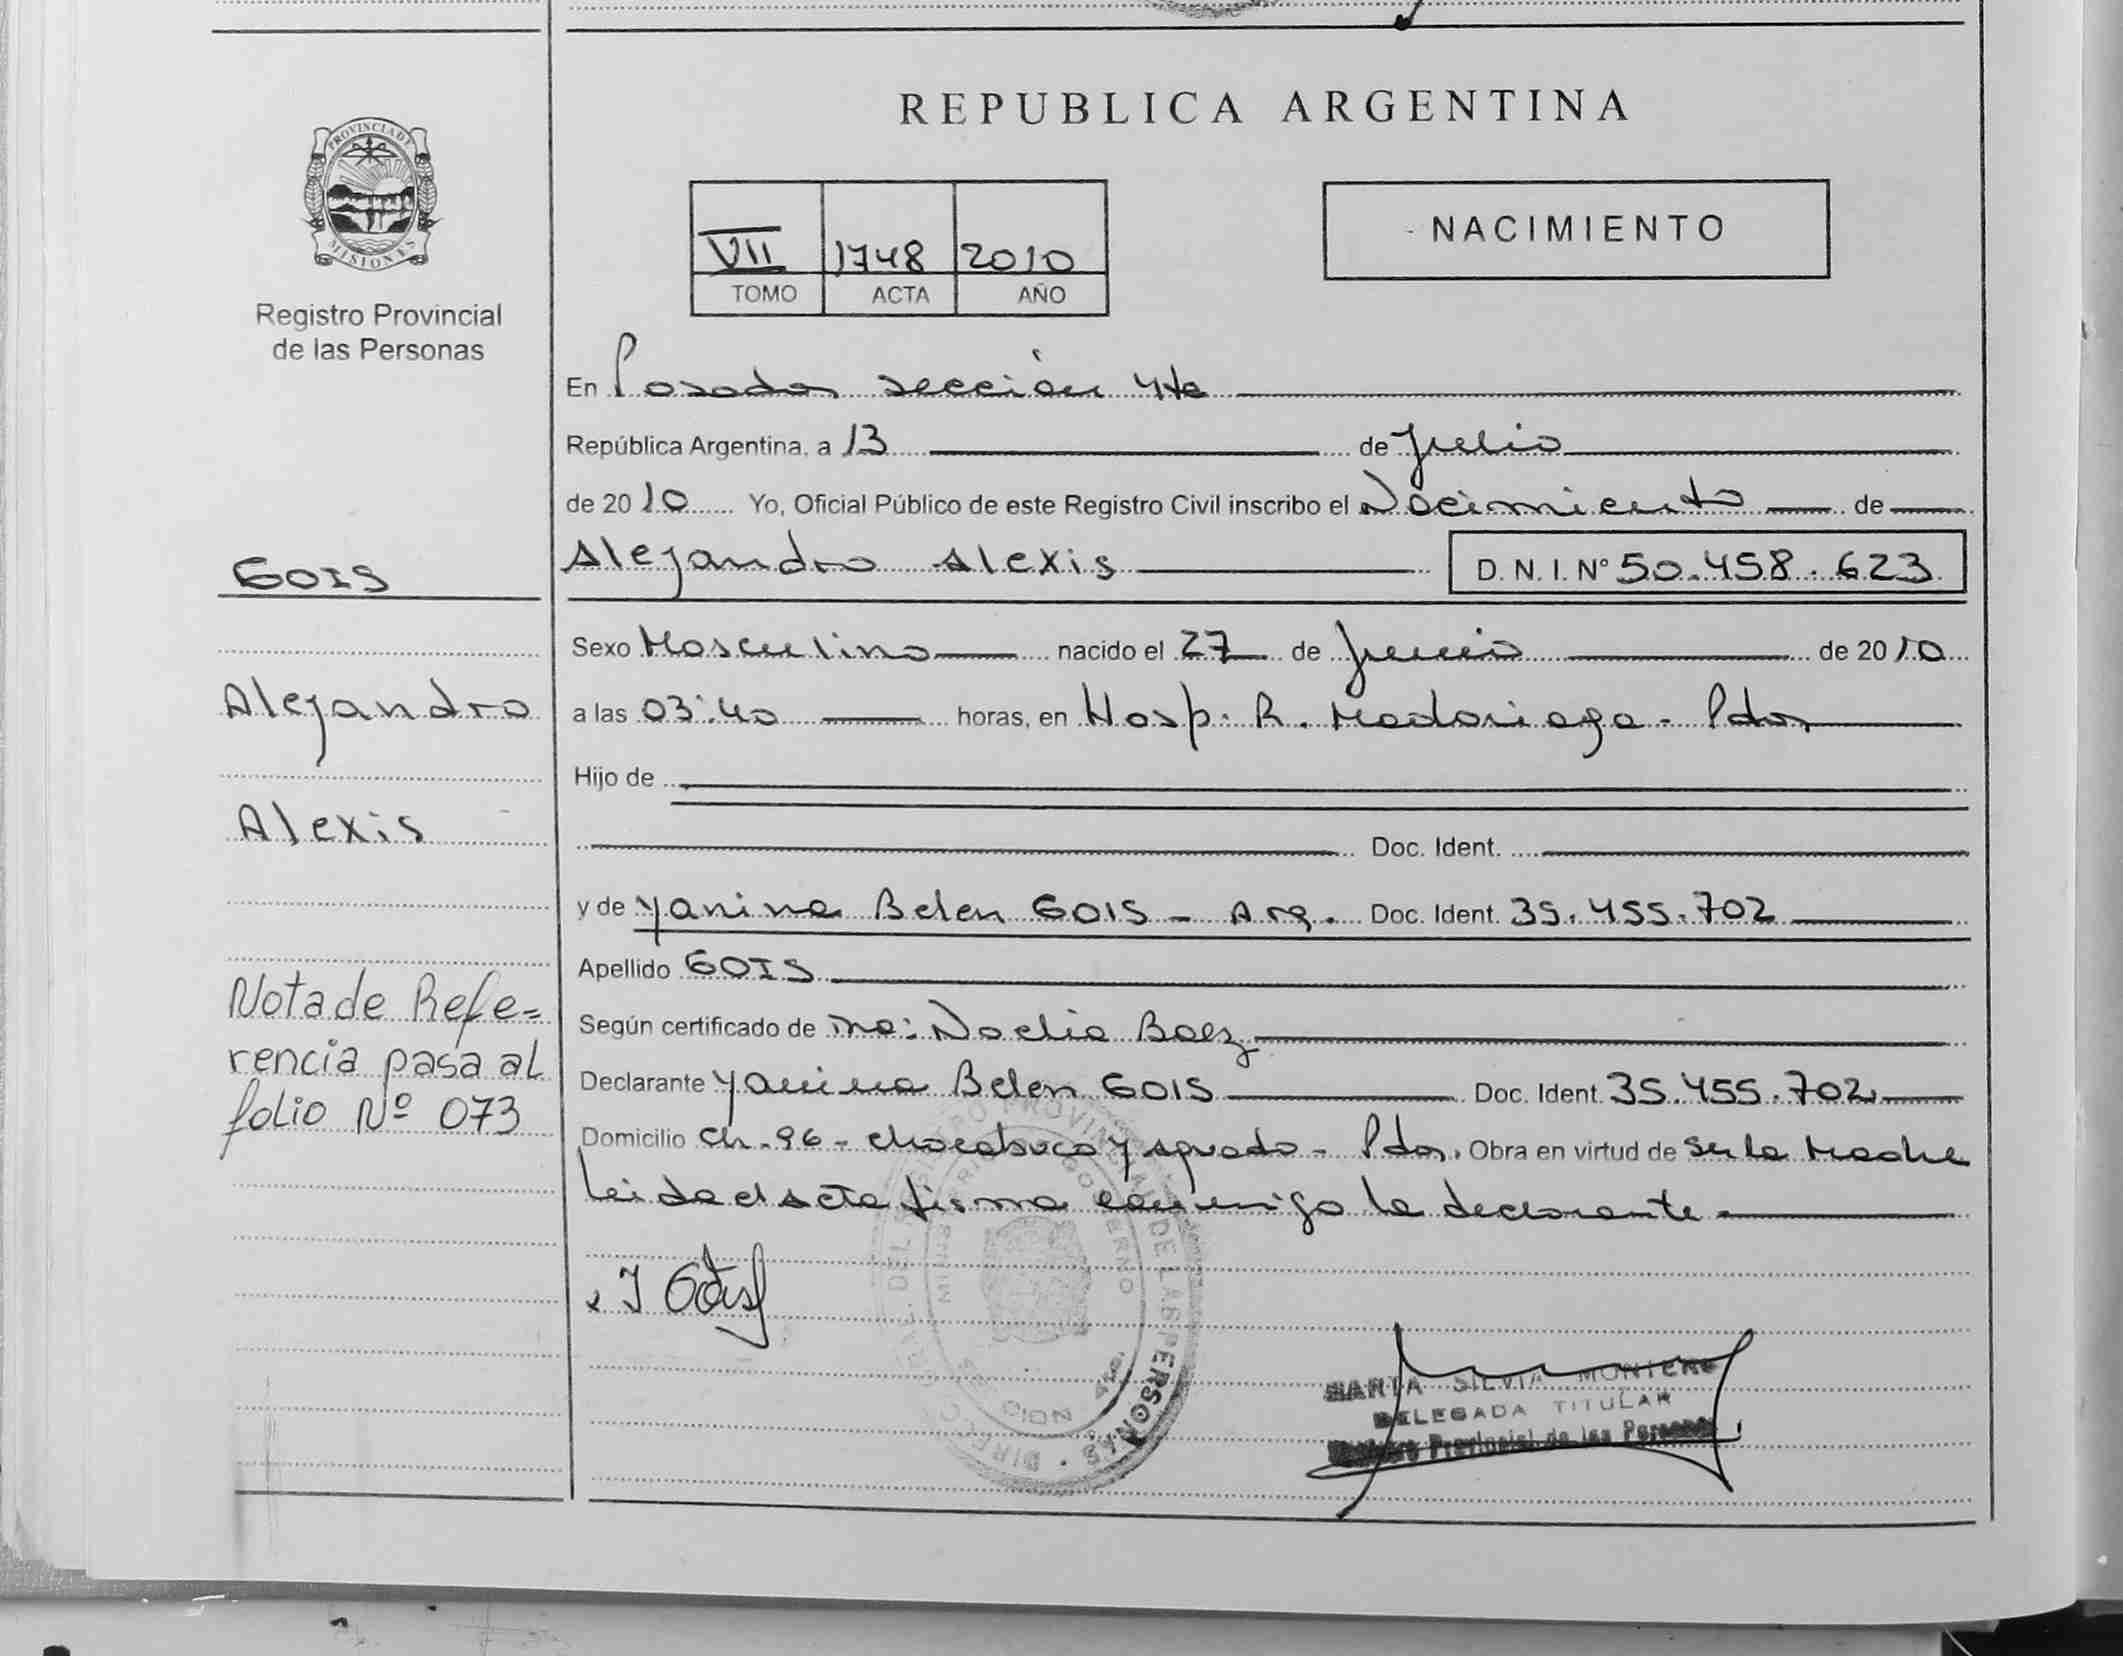 PROVINCIA DE
MISIONES
Registro Provincial
de las Personas
GOIS
Alejandro
Alexis
Nota de Refe=
rencia pasa al
folio Nº 073
REPUBLICA ARGENTINA
VII 1748 2010
TOMO ACTA AÑO
NACIMIENTO
En Posadas sección 4ta
República Argentina, a 13 de Julio
de 2010 Yo, Oficial Público de este Registro Civil inscribo el Nacimiento de
Alejandro Alexis D.N.I. Nº 50.458.623
Sexo Masculino nacido el 27 de Junio de 2010
a las 03:40 horas, en Hosp. R. Madariaga - Pdas
Hijo de
Doc. Ident.
y de Yanina Belen GOIS - Arg. Doc. Ident. 35.455.702
Apellido GOIS
Según certificado de Noelia Baez
Declarante Yanina Belen GOIS Doc. Ident. 35.455.702
Domicilio Ch. 96 - Chacabuco y Aguado - Pdas. Obra en virtud de ser la Madre
Leida el acta firma conmigo la declarante
MARTA SILVIA MONTERO
DELEGADA TITULAR
Registro Provincial de las Personas